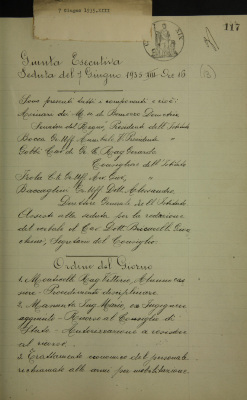 7 Giugno 1935-XIII
117
Giunta Esecutiva
Seduta del 7 Giugno 1935 XIII - Ore 16
Sono presenti tutti i componenti e cioè:
Senatore del Regno, Presidente dell'Istituto
V. Presidente "
Gobbi Cav. di Gr. Cr. Rag. Gerardo
Consigliere dell'Istituto
Gr. Uff. Avv.
Gr. Uff. Dott. Alessandro,
Direttore Generale dell'Istituto
Assiste alla seduta per la redazione
del verbale il Cav. Dott.
Segretario del Consiglio.
Ordine del Giorno
1. Rag. Vittorio, Alunno
- Provvedimento disciplinare.
2. Ing. Mario, ex Ingegnere
aggiunto - Ricorso al Consiglio di
Stato - Autorizzazione a resistere
al ricorso.
3. Trattamento economico del personale
richiamato alle armi per mobilitazione.